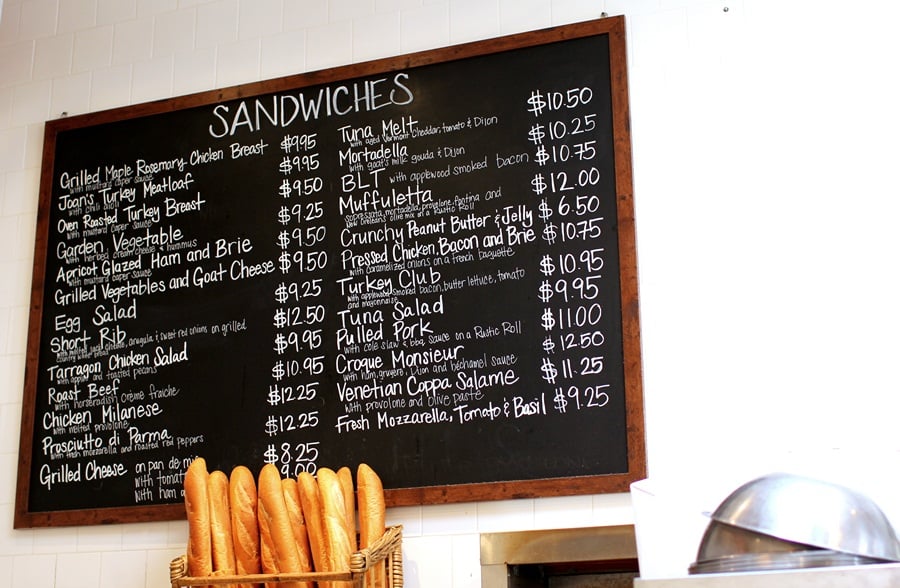 SANDWICHES
Grilled Maple Rosemary-Chicken Breast $9.95
with mustard caper sauce
Joan's Turkey Meatloaf $9.95
with chili aioli
Oven Roasted Turkey Breast $9.50
with mustard caper sauce
Garden Vegetable $9.25
with herbed cream cheese & hummus
Apricot Glazed Ham and Brie $9.50
with mustard caper sauce
Grilled Vegetables and Goat Cheese $9.50
Egg Salad $9.25
Short Rib $12.50
with melted jack cheese, arugula & sweet red onions on grilled
country white bread
Tarragon Chicken Salad $9.95
with apples and toasted pecans
Roast Beef $10.95
with horseradish crème fraiche
Chicken Milanese $12.25
with melted provolone
Prosciutto di Parma $12.25
with fresh mozzarella and roasted red peppers
Grilled Cheese on pan de mie $8.25
with tomat 9.00
with ham a
Tuna Melt $10.50
with aged Vermont Cheddar, tomato & Dijon
Mortadella $10.25
with goat's milk gouda & Dijon
BLT with applewood smoked bacon $10.75
Muffuletta $12.00
sopressata, mortadella, provolone, fontina and
New Orleans olive mix on a Rustic Roll
Crunchy Peanut Butter & Jelly $6.50
Pressed Chicken, Bacon and Brie $10.75
with caramelized onions on a french baguette
Turkey Club $10.95
with applewood smoked bacon, butter lettuce, tomato
and mayonnaise
Tuna Salad $9.95
Pulled Pork $11.00
with cole slaw & bbq sauce on a Rustic Roll
Croque Monsieur $12.50
with ham, gruyere, Dijon and bechamel sauce
Venetian Coppa Salame $11.25
with provolone and olive paste
Fresh Mozzarella, Tomato & Basil $9.25